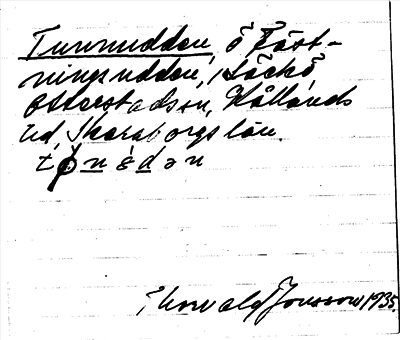 Tunnudden, ö Fäst-
ningsudden, Läckö
Otterstadsn, Kållands
hd, Skaraborgs län.
tønədən
Thorvald Jonsson 1935.